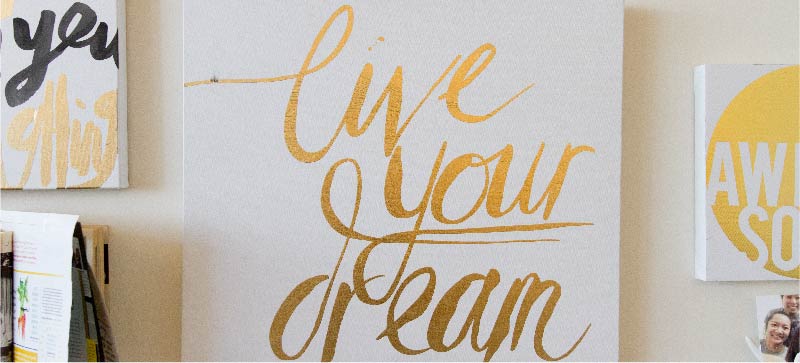 you
live
your
dream
AWE
SO